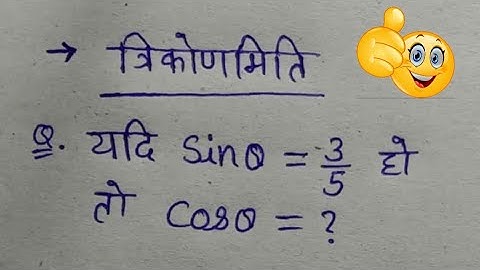 → त्रिकोणमिति
Q. यदि sinθ = 3/5 हो
तो cosθ = ?